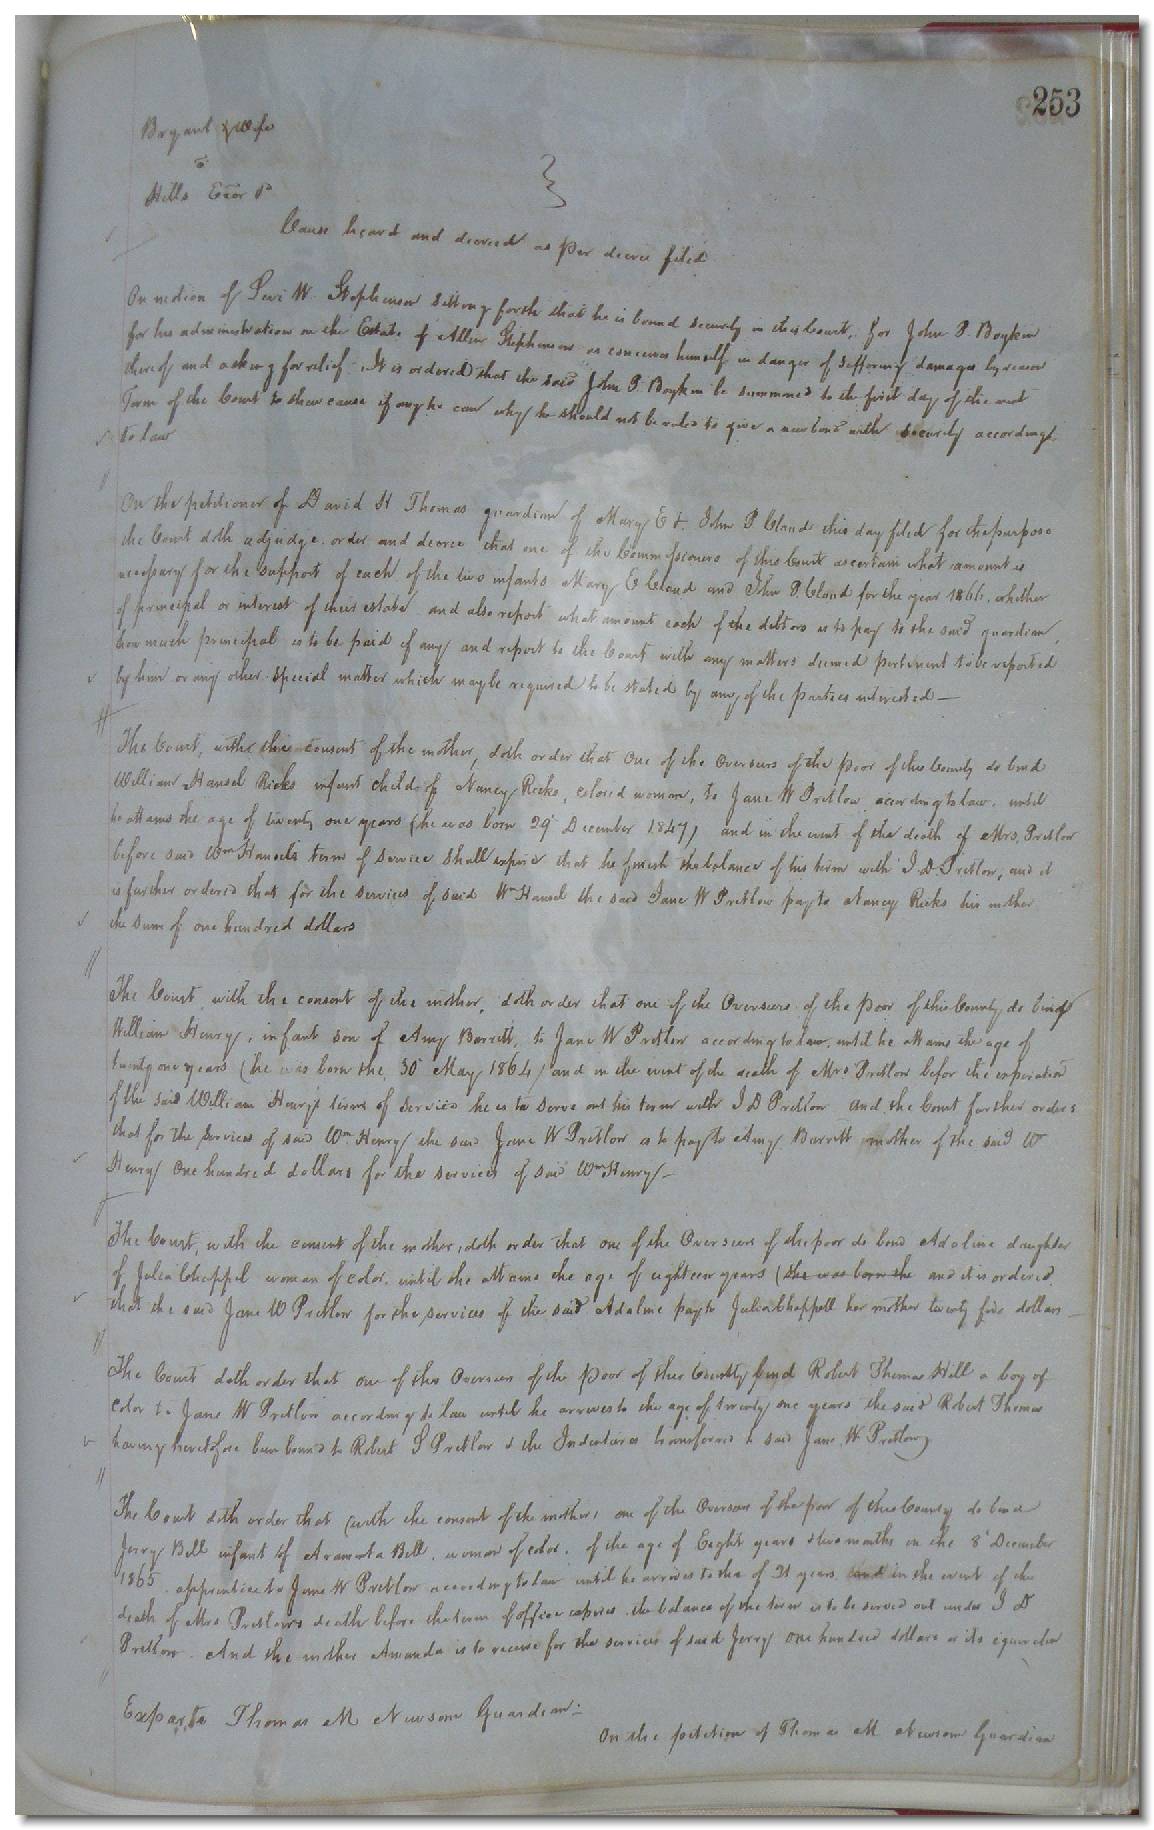 253
Bryant & Wife
vs
Hills Exor &c
Cause heard and decreed as per decree filed
On motion of Levi W. Stephenson setting forth that he is bound security in this Court, for John P. Boykin
for his administration on the Estate of Allen Stephenson as conceives himself in danger of suffering damages by reason
thereof and asking for relief. It is ordered that the said John P. Boykin be summoned to the first day of the next
Term of the Court to shew cause if any he can why he should not be ruled to give a new bond with security according
to law
On the petitioner of David H Thomas guardian of Mary E & John P Claud this day filed for the purpose
the Court doth adjudge order and decree that one of the Commissioners of this Court ascertain what amount is
necessary for the support of each of the two infants Mary E Claud and John P. Claud for the year 1866. whether
of principal or interest of their estate and also report what amount each of the debtors is to pay to the said guardian,
how much principal is to be paid if any and report to the Court with any matters deemed pertinent to be reported
by him or any other special matter which may be required to be stated by any of the parties interested —
The Court, with the consent of the mother, doth order that one of the Overseers of the poor of this County do bind
William Hansel Ricks infant child of Nancy Ricks, colored woman, to Jane W Pretlow according to law, until
he attains the age of twenty one years (he was born 29 December 1847) and in the event of the death of Mrs. Pretlow
before said Wm Hansels term of service shall expire that he finish the balance of his term with J D Pretlow, and it
is further ordered that for the services of said Wm Hansel the said Jane W Pretlow pay to Nancy Ricks his mother
the sum of one hundred dollars
The Court, with the consent of the mother, doth order that one of the Overseers of the poor of this County do bind
William Henry, infant son of Amy Barrett, to Jane W Pretlow according to law, until he attains the age of
twenty one years (he was born the 30 May 1864) and in the event of the death of Mrs Pretlow befor the expiration
of the said William Henrys terms of service he is to serve out his term with J D Pretlow and the Court further orders
that for the services of said Wm Henry the said Jane W Pretlow is to pay to Amy Barrett mother of the said W
Henry One hundred dollars for the services of said Wm Henry —
The Court, with the consent of the mother, doth order that one of the Overseers of the poor do bind Adaline daughter
of Julia Chappel woman of color, until she attains the age of eighteen years (she was born the and it is ordered
that the said Jane W Pretlow for the services of the said Adaline pay to Julia Chappell her mother twenty five dollars —
The Court doth order that one of the Overseers of the Poor of this County bind Robert Thomas Hill a boy of
color to Jane W Pretlow according to law until he arrives to the age of twenty one years the said Robert Thomas
having heretofore been bound to Robert S Pretlow & the Indentures transferred to said Jane W Pretlow)
The Court doth order that (with the consent of the mother) one of the Overseers of the poor of this County do bind
Jerry Bell infant of Araminta Bell, woman of color, of the age of Eight years & two months on the 8 December
1865 apprentice to Jane W Pretlow according to law until he arrives to the of 21 years. and in the event of the
death of Mrs Pretlows death before the term of office expires the balance of the term is to be served out under J D
Pretlow. And the mother Amanda is to receive for the services of said Jerry one hundred dollars or its equivalen
Exparte Thomas M Newsom Guardian:
On the petition of Thomas M Newsom Guardian